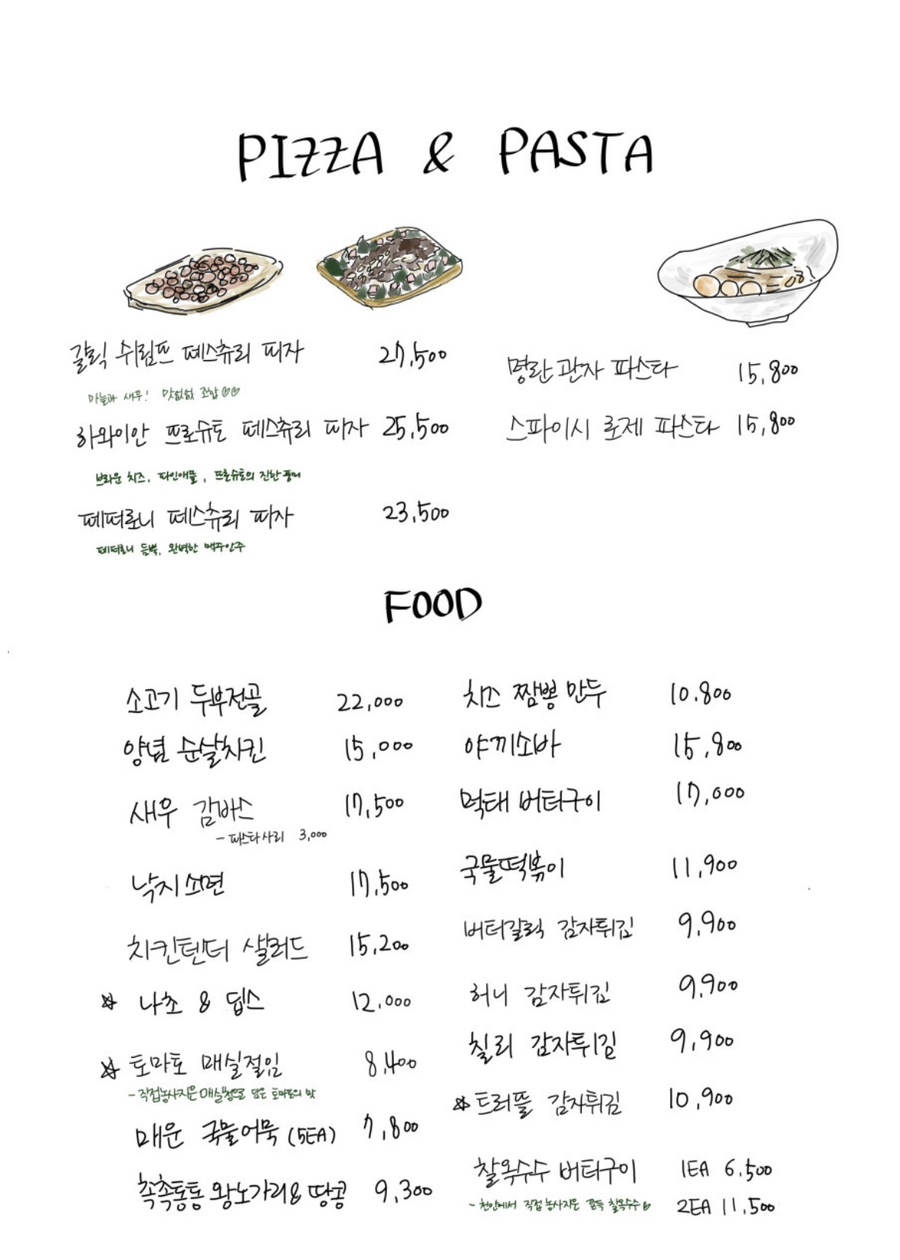 PIZZA & PASTA
갈릭 쉬림프 페스츄리 피자 27,500
마늘과 새우! 맛없없 조합♡♡
하와이안 프로슈토 페스츄리 피자 25,500
브라운 치즈, 파인애플, 프로슈토의 진한 풍미
페퍼로니 페스츄리 피자 23,500
페퍼로니 듬뿍, 완벽한 맥주안주
명란 관자 파스타 15,800
스파이시 로제 파스타 15,800
FOOD
소고기 두부전골 22,000
양념 순살치킨 15,000
새우 감바스 17,500
- 파스타사리 3,000
낙지소면 17,500
치킨텐더 샐러드 15,200
☆ 나초 & 딥스 12,000
☆ 토마토 매실절임 8,400
- 직접농사지은 매실청으로 담은 토마토의 맛
매운 국물어묵 (5EA) 7,800
촉촉통통 왕노가리& 땅콩 9,300
치즈 짬뽕 만두 10,800
야끼소바 15,800
먹태 버터구이 17,000
국물떡볶이 11,900
버터갈릭 감자튀김 9,900
허니 감자튀김 9,900
칠리 감자튀김 9,900
☆ 트러플 감자튀김 10,900
찰옥수수 버터구이 1EA 6,500
- 천안에서 직접 농사지은 찰옥수수
2EA 11,500